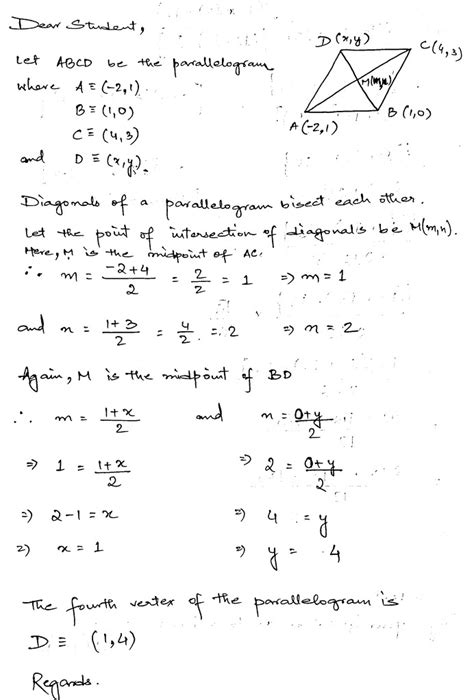 Dear Student,
Let ABCD be the parallelogram
where A ≡ (-2,1)
B ≡ (1,0)
C ≡ (4,3)
and D ≡ (x,y).
D(x,y)
C(4,3)
M(m,n)
B(1,0)
A(-2,1)
Diagonals of a parallelogram bisect each other.
Let the point of intersection of diagonals be M(m,n).
Here, M is the midpoint of AC.
∴ m = (-2+4)/2 = 2/2 = 1 ⇒ m = 1
and n = (1+3)/2 = 4/2 = 2 ⇒ n = 2
Again, M is the midpoint of BD
∴ m = (1+x)/2 and n = (0+y)/2
⇒ 1 = (1+x)/2 ⇒ 2 = (0+y)/2
⇒ 2-1 = x ⇒ 4 = y
⇒ x = 1 ⇒ y = 4
The fourth vertex of the parallelogram is
D ≡ (1,4)
Regards.